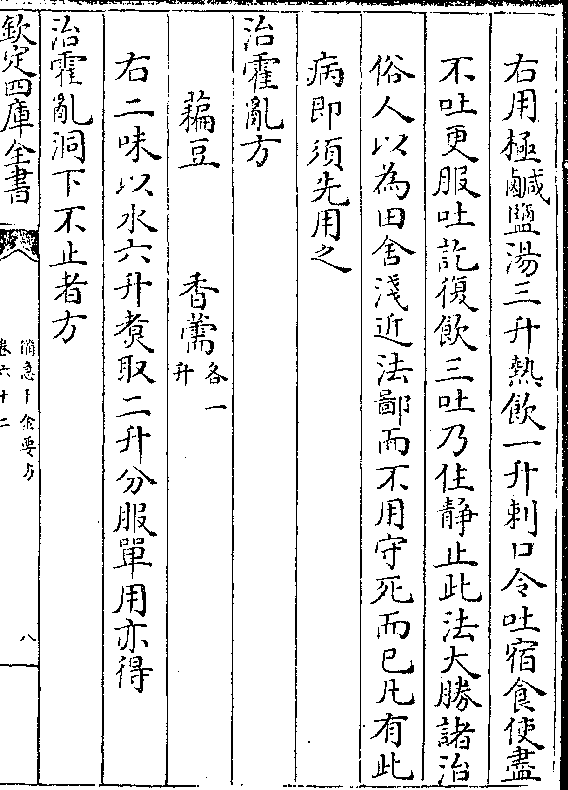 右用極鹹鹽湯三升熱飲一升刺口令吐宿食使盡
不吐更服吐訖復飲三吐乃住静止此法大勝諸治
俗人以為田舍淺近法鄙而不用守死而已凡有此
病即須先用之
治霍亂方
藊豆 香薷各一升
右二味以水六升煮取二升分服單用亦得
治霍亂洞下不止者方
欽定四庫全書 備急千金要方 卷六十二 八